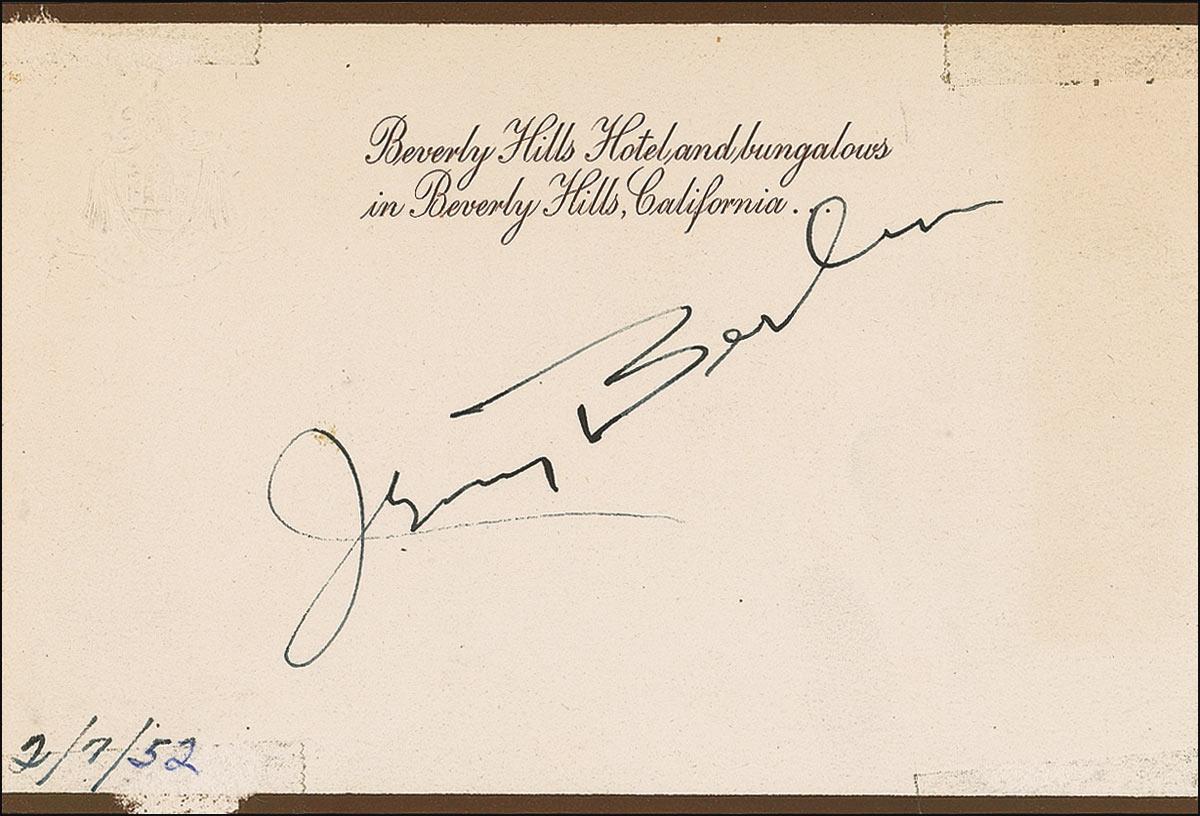 Beverly Hills Hotel and bungalows
in Beverly Hills, California . . .
Irving Berlin
2/7/52